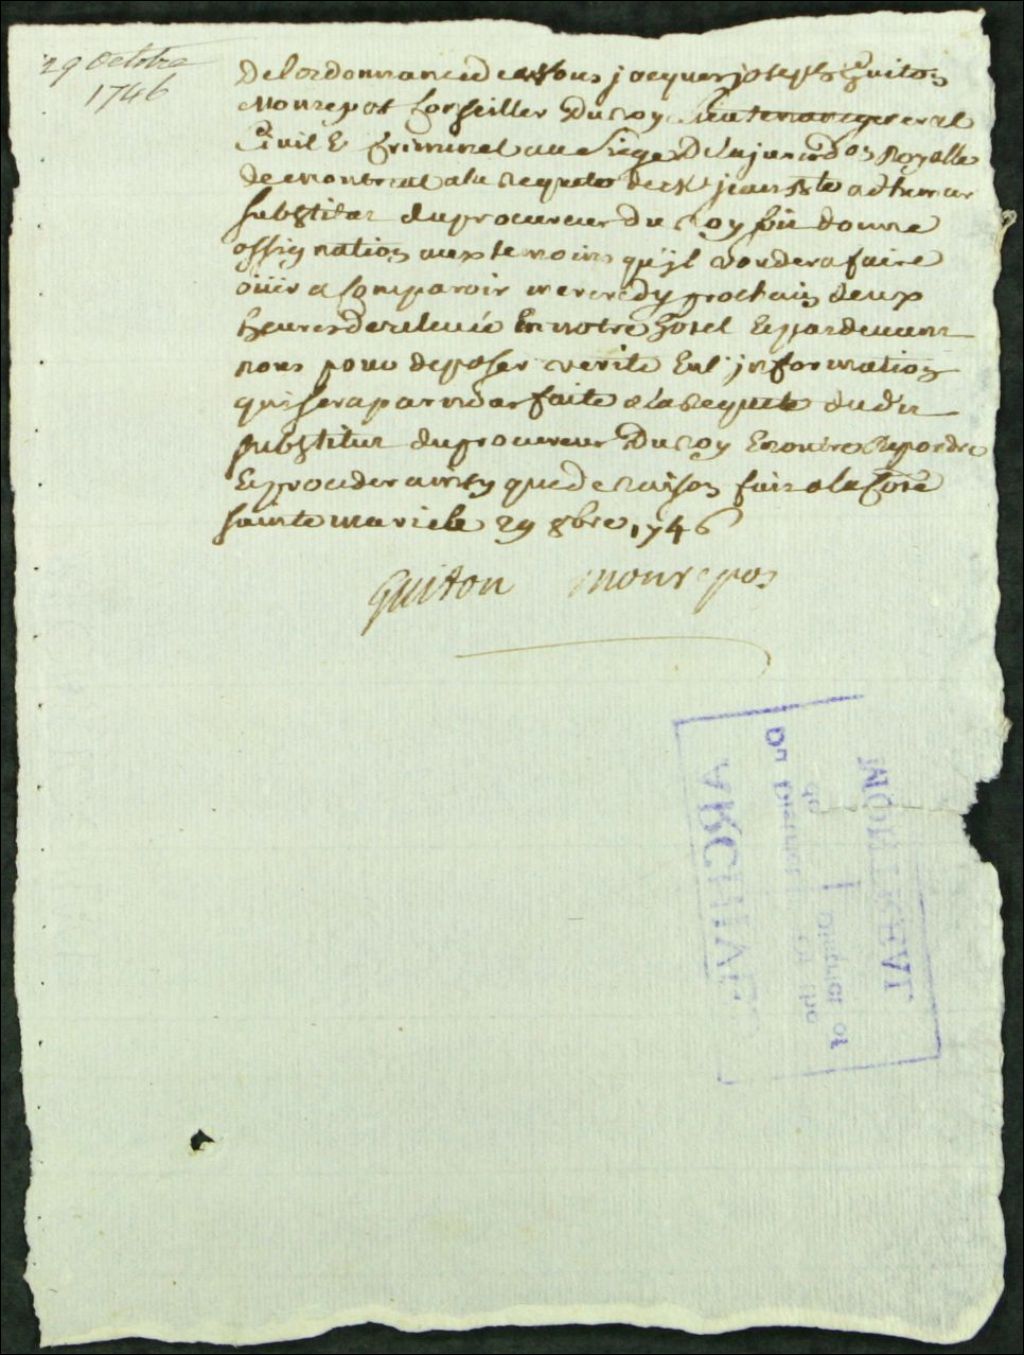 29 Octobre
1746
De lordonnance de Nous jacques joseph Guiton
Monrepos Conseiller Du roy Lieutenant general
Civil E Criminel au Siege De la jurisd.on Royalle
De montreal a la Requete de Me jean Bte adhemar
substitut du procureur Du Roy soit donné
assignation aux temoins qu'jl voudera faire
oüir a Comparoir mercredy prochain deux
heures de relevée En notre hotel Et pardevant
nous pour deposer verité En l'jnformation
qui sera par nous faite a la Requete dudit
substitut du procureur Du roy En outre Repondre
Et proceder ainsy que De Raison fait a la Coste
sainte marie le 29 8bre 1746
Guiton Monrepos
MONTREAL
District of
ARCHIVES